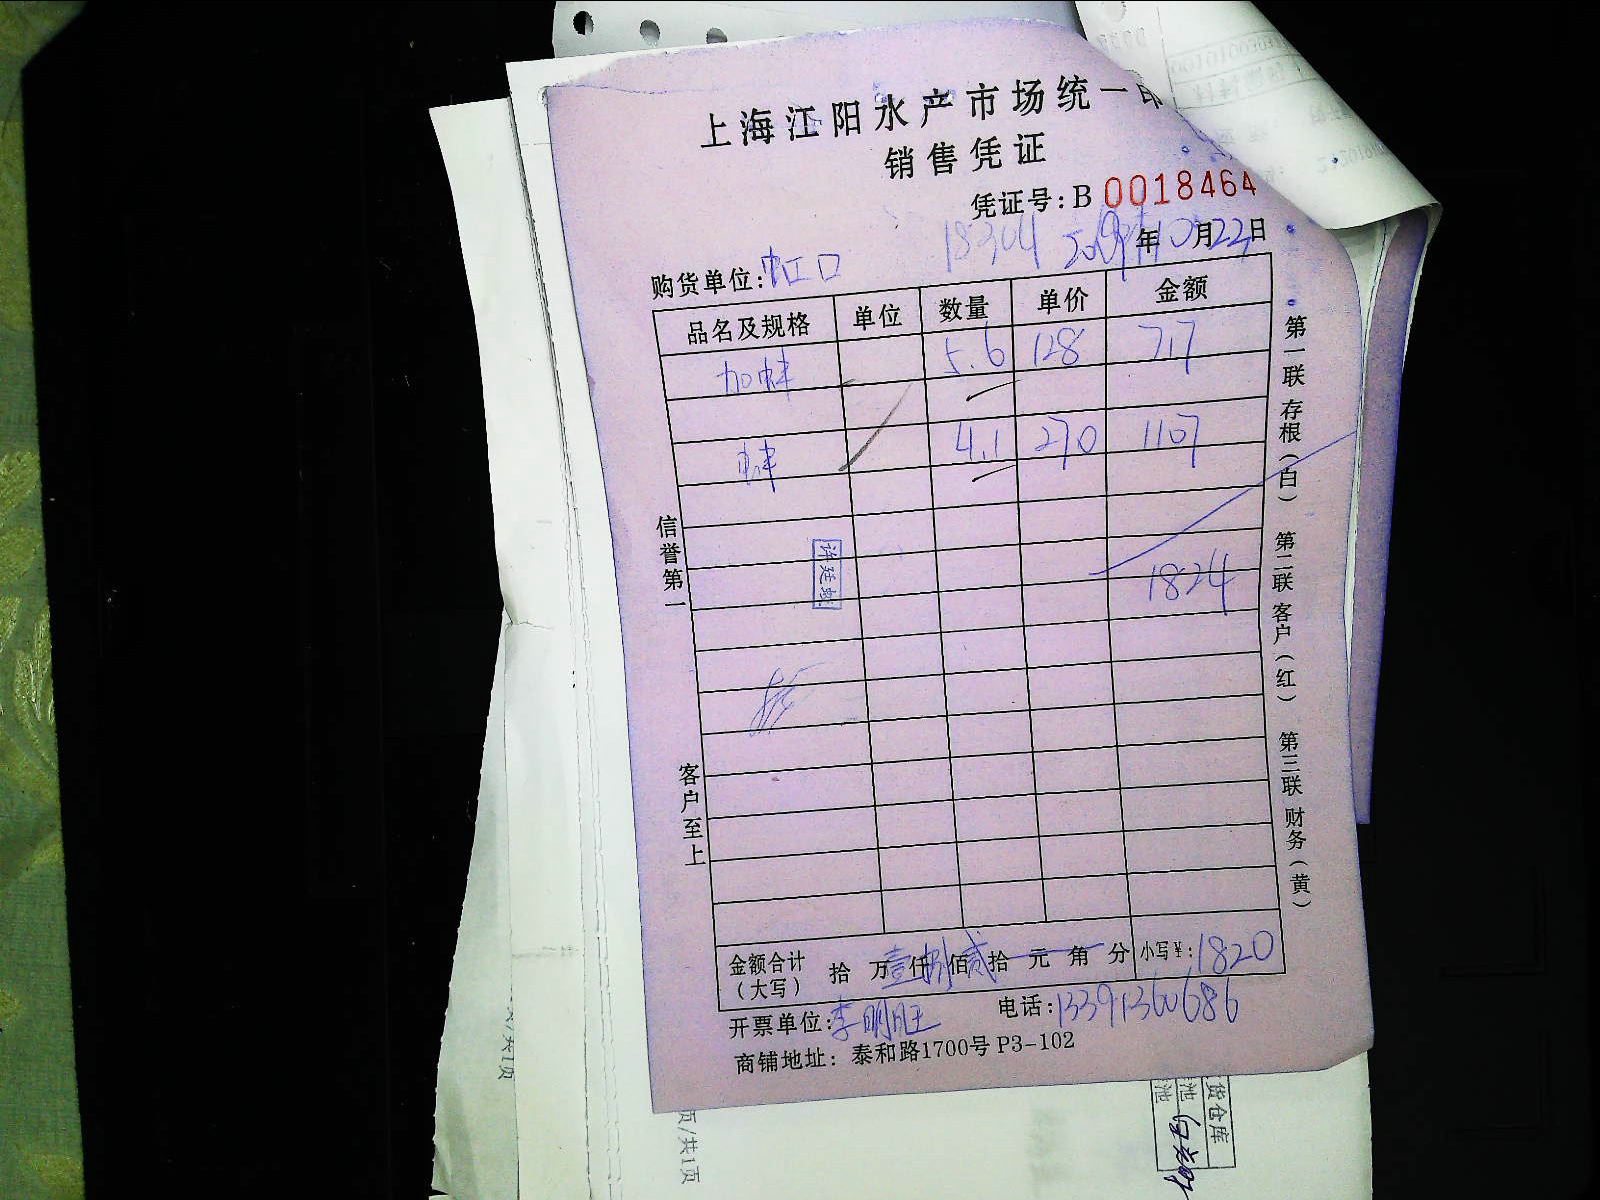 上海江阳水产市场统一印
销售凭证
凭证号:B 0018464
18304 2019年10月22日
购货单位:虹口
品名及规格 单位 数量 单价 金额
加 5.6 128 717
4.1 270 1107
1824
信誉第一
客户至上
第一联 存根(白) 第二联 客户(红) 第三联 财务(黄)
金额合计(大写) 拾 万壹仟捌佰贰拾 元 角 分 小写¥:1820
开票单位:李明旺 电话:13391360686
商铺地址: 泰和路1700号 P3-102
页/共1页
页/共1页
货仓库